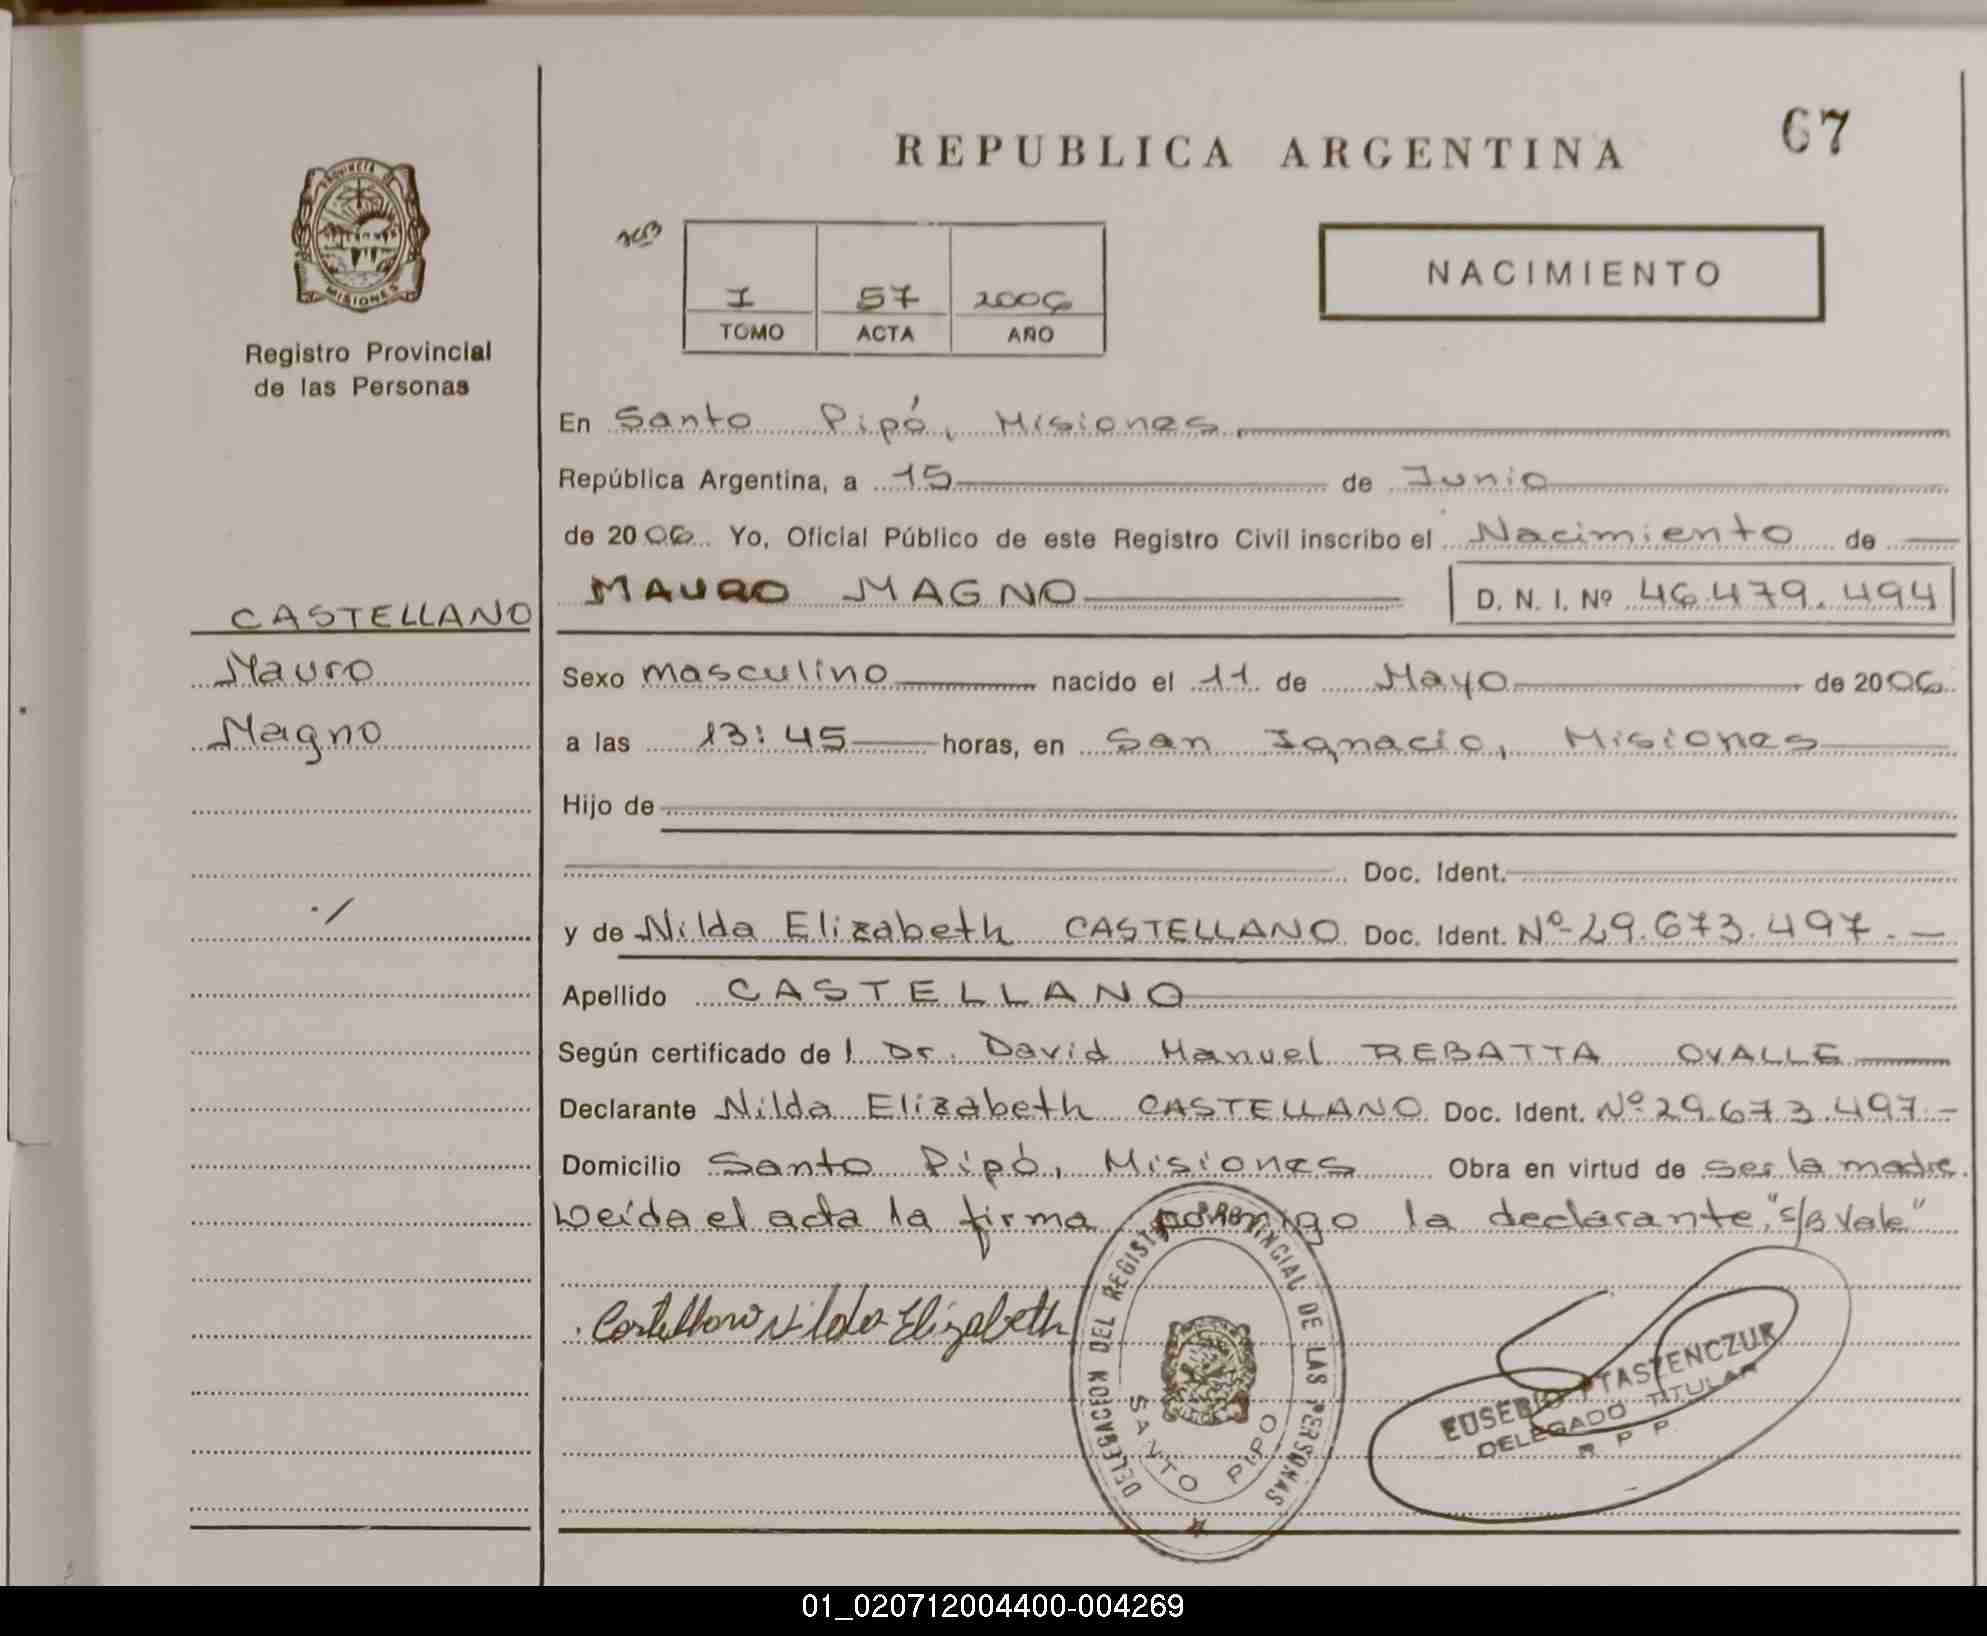 REPUBLICA ARGENTINA
67
PROVINCIA DE
MISIONES
Registro Provincial
de las Personas
I 57 2006
TOMO ACTA AÑO
NACIMIENTO
En Santo Pipó, Misiones.
República Argentina, a 15 de Junio
de 2006 Yo, Oficial Público de este Registro Civil inscribo el Nacimiento de
MAURO MAGNO D. N. I. Nº 46.479.494
CASTELLANO
Mauro
Magno
Sexo masculino nacido el 11 de Mayo de 2006
a las 13:45 horas, en San Ignacio, Misiones
Hijo de
Doc. Ident.
y de Nilda Elizabeth CASTELLANO Doc. Ident. Nº 29.673.497.-
Apellido CASTELLANO
Según certificado de l Dr. David Manuel REBATTA OVALLE
Declarante Nilda Elizabeth CASTELLANO Doc. Ident. Nº 29.673.497.-
Domicilio Santo Pipó, Misiones Obra en virtud de ser la madre.
Leída el acta la firma conmigo la declarante. "s/b Vale"
Castellano Nilda Elizabeth
DELEGACION DEL REGISTRO PROVINCIAL DE LAS PERSONAS
SANTO PIPO
EUSEBIO PTASZENCZUK
DELEGADO TITULAR
R P P
01_020712004400-004269